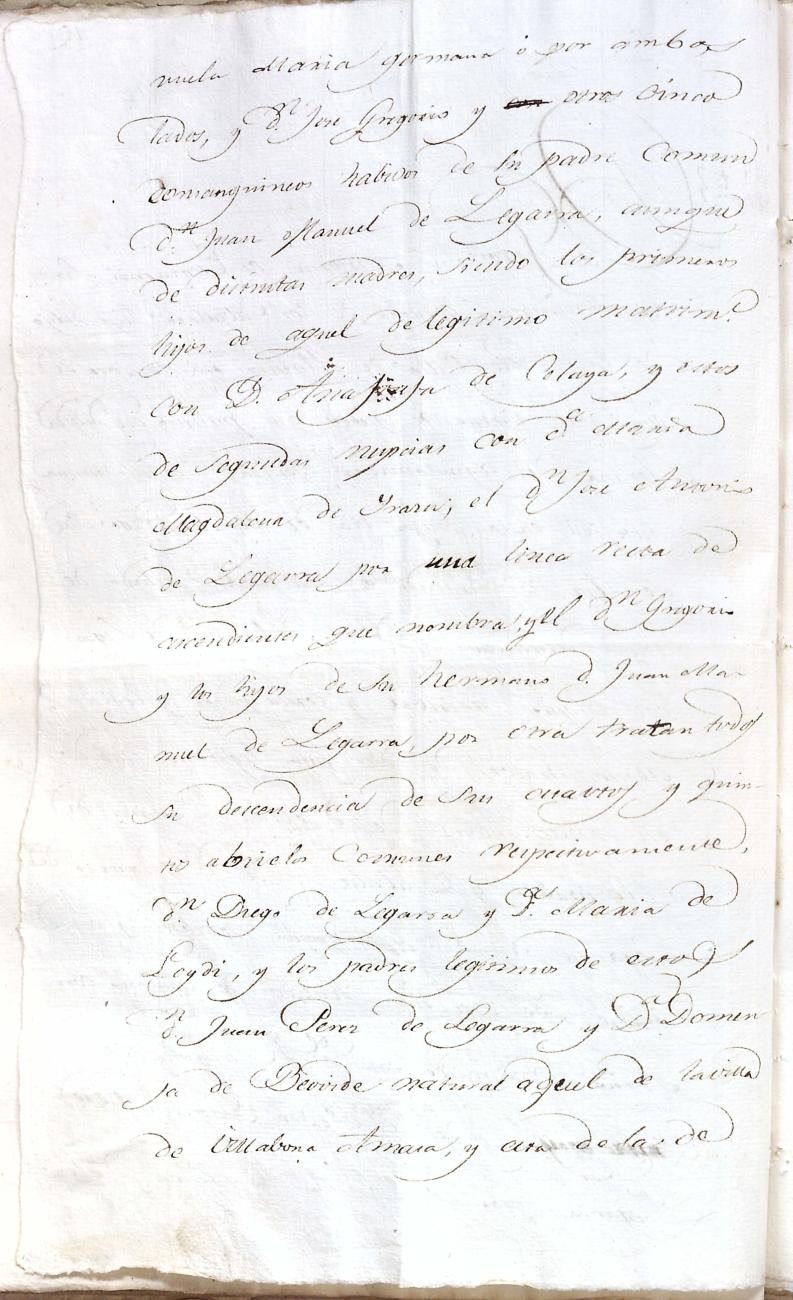 nuela Maria germana o por ambos
lados, y d.n Jose Gregorio y otros Cinco
consanguineos habidos de su padre Comun
d.n Juan Manuel de Legarra, aunque
de distintas madres, siendo los primeros
hijos de aquel de legitimo matrim.o
con D. Ana de Colaya, y estos
de segundas nupcias con d.a Maria
Magdalena de el d.n Jose Antonio
de Legarra por una linea recta de
ascendientes que nombra, y el d.n Gregorio
y los hijos de su hermano d. Juan Ma
nuel de Legarra, por otra tratan todos
su descendencia de sus cuartos y quin-
tos abuelos Comunes respectivamente,
d.n Diego de Legarra y D.a Maria de
Loydi, y los padres legitimos de estos
d.n Juan Perez de Legarra y D.a Domen
ja de natural aquel de la villa
de Villabona Amasa, y esta de la de